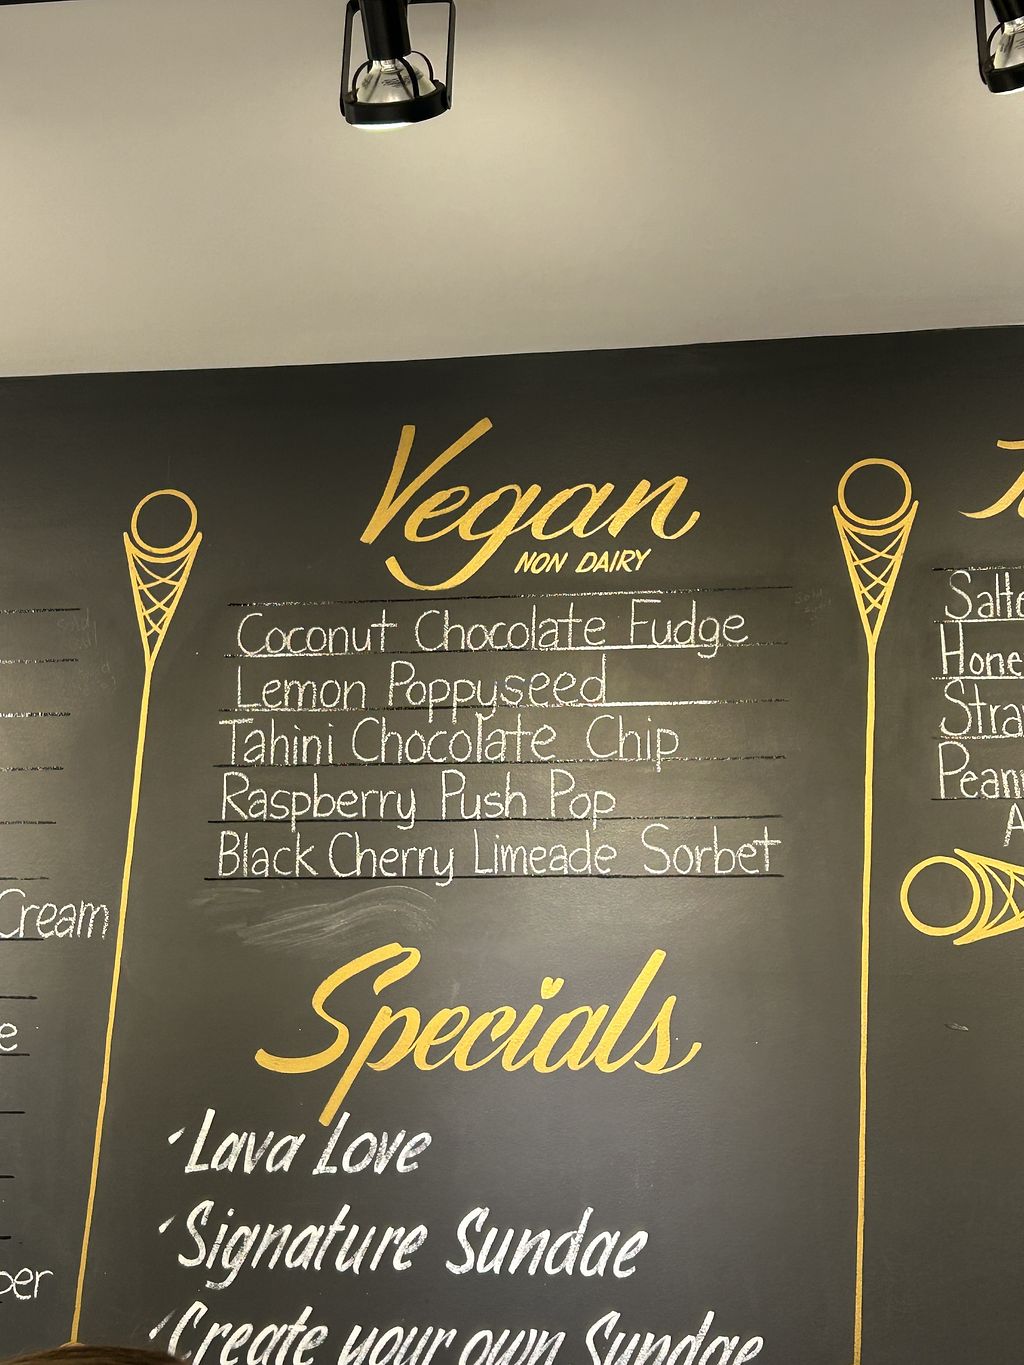 Cream
e
per
Vegan
NON DAIRY
Coconut Chocolate Fudge
Lemon Poppyseed
Tahini Chocolate Chip
Raspberry Push Pop
Black Cherry Limeade Sorbet
Specials
Lava Love
Signature Sundae
Create your own Sundae
Salte
Hone
Stra
Pean
A